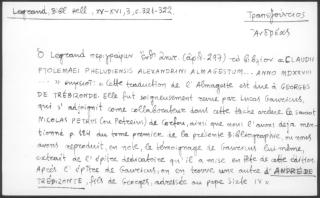 Legrand, Bibl. hell., XV-XVI, 3, σ. 321-322.
Τραπεζούντιος
Ἀνδρέας
Ὁ Legrand περιγράφει ὑπ' (ἀρ. 297) τὸ βιβλίον « CLAUDII
PTOLEMAEI PHELUDIENSIS ALEXANDRINI ALMAGESTUM... ANNO MDXXVIII
« Cette traduction de l'Almageste est due à GEORGES
DE TRÉBIZONDE. Elle fut soigneusement revue par Lucas Gauricus,
qui s'adjoignit comme collaborateur dans cette tâche ardue le savant
NICOLAS PETRIS (ou Petreius) de Corfou, ainsi que nous l'avons déjà men-
tionné p. 184 du tome premier de la présente Bibliographie, où nous
avons reproduit, en note, le témoignage de Gauricus lui-même,
extrait de l'épître dédicatoire qu'il a mise en tête de cette édition.
Après l'épître de Gauricus, on en trouve une autre d'ANDRÉ DE
TRÉBIZONTE, fils de Georges, adressée au pape Sixte IV »